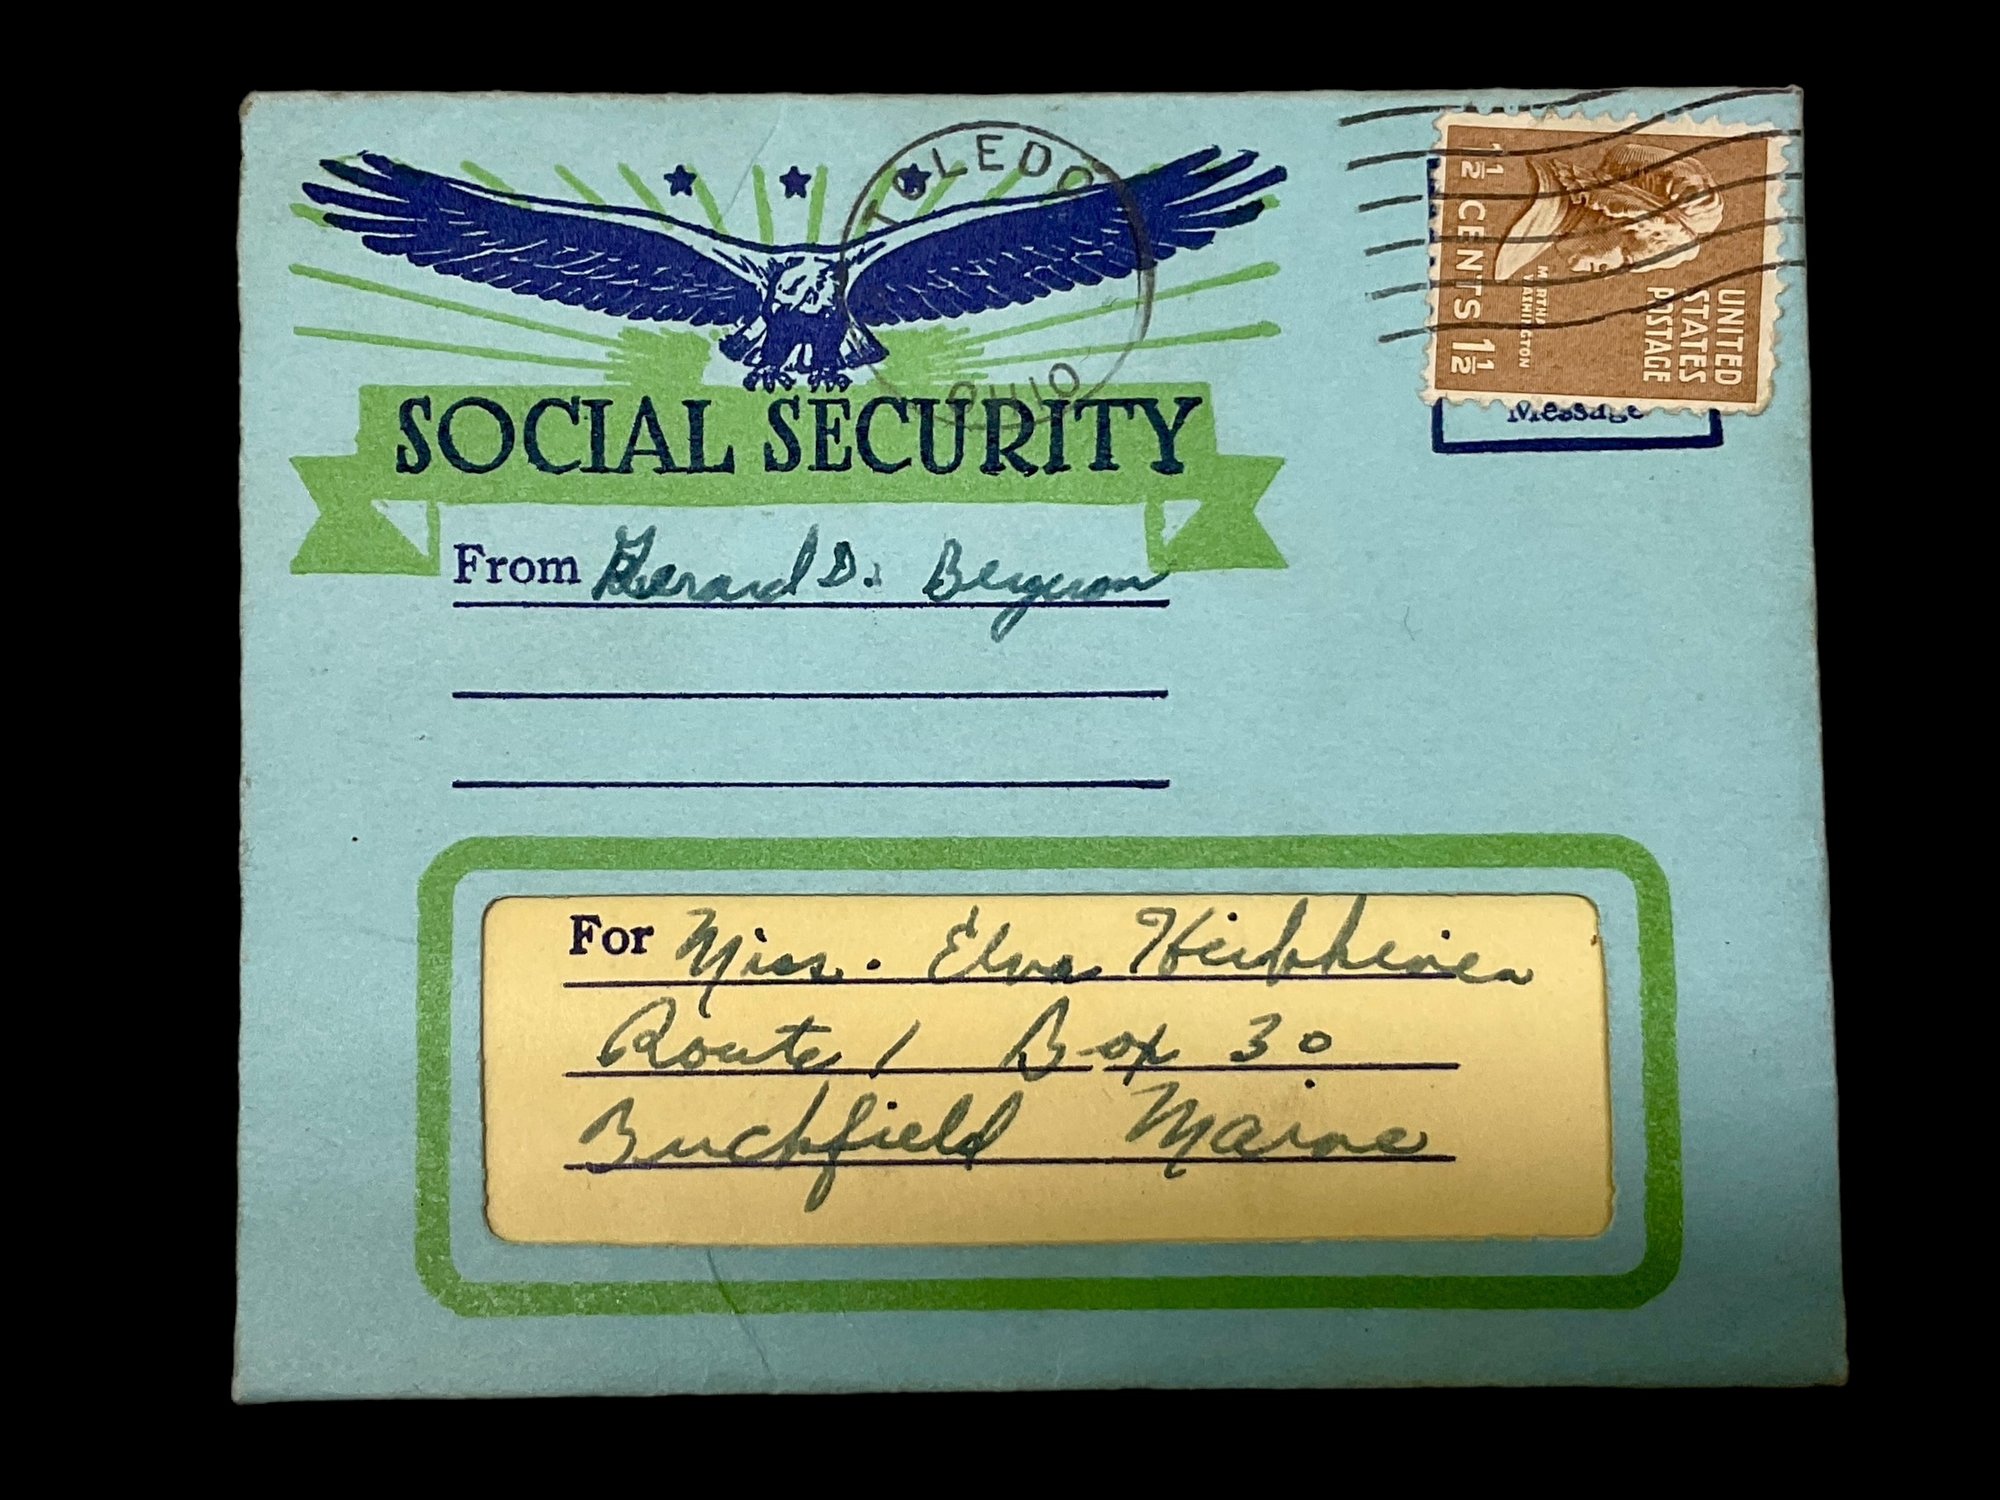 TOLEDO
OHIO
1½ CENTS 1½
MARTHA WASHINGTON
UNITED STATES POSTAGE
Message
SOCIAL SECURITY
From Gerard D. Bergeron
For Miss. Elva
Route 1 Box 30
Buckfield Maine